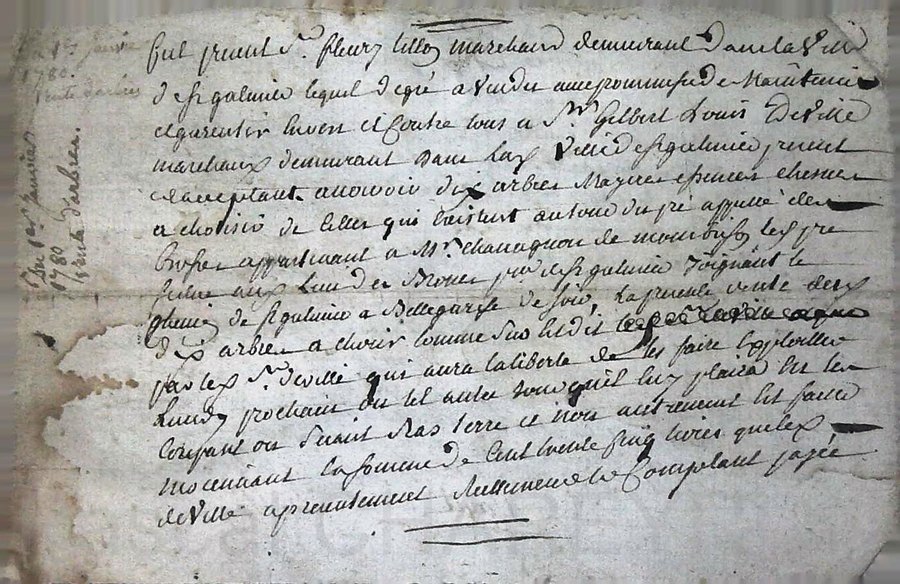 Du 17 janvier
1780.
vente d'arbres
Du 17e Janvier
1780
Vente d'arbres.
fut present Sr. fleury marchand demeurant dans la ville
de St galmier lequel de gré a vendu avec promesse de Maintenir
et garentir Envers et Contre tous a Sr Gilbert Louis DeVille
marchand demeurant dans lad. Ville de St galmier present
et acceptant. assavoir dix arbres essence chesne
a choisir de Celles qui Existent autour du pré appellé des
Brosses appartenant a Mr. chavagnon de montbrison led. pré
scitué aux lieu des Brosses psse. de St galmier Joignant le
chemin de St galmier a Bellegarde de soir, la presente vente desd.
dix arbres a choisir comme sus Est dit
par led. Sr. deville qui aura la liberté de les faire Exploiter
Lundy prochain ou tel autre Jour qu'il luy plaira En les
Coupant ou sciant Ras terre et non autrement Est faitte
moiennant la somme de Cent trente Cinq livres que led.
deVille a presentement Reellement et Comptant payée